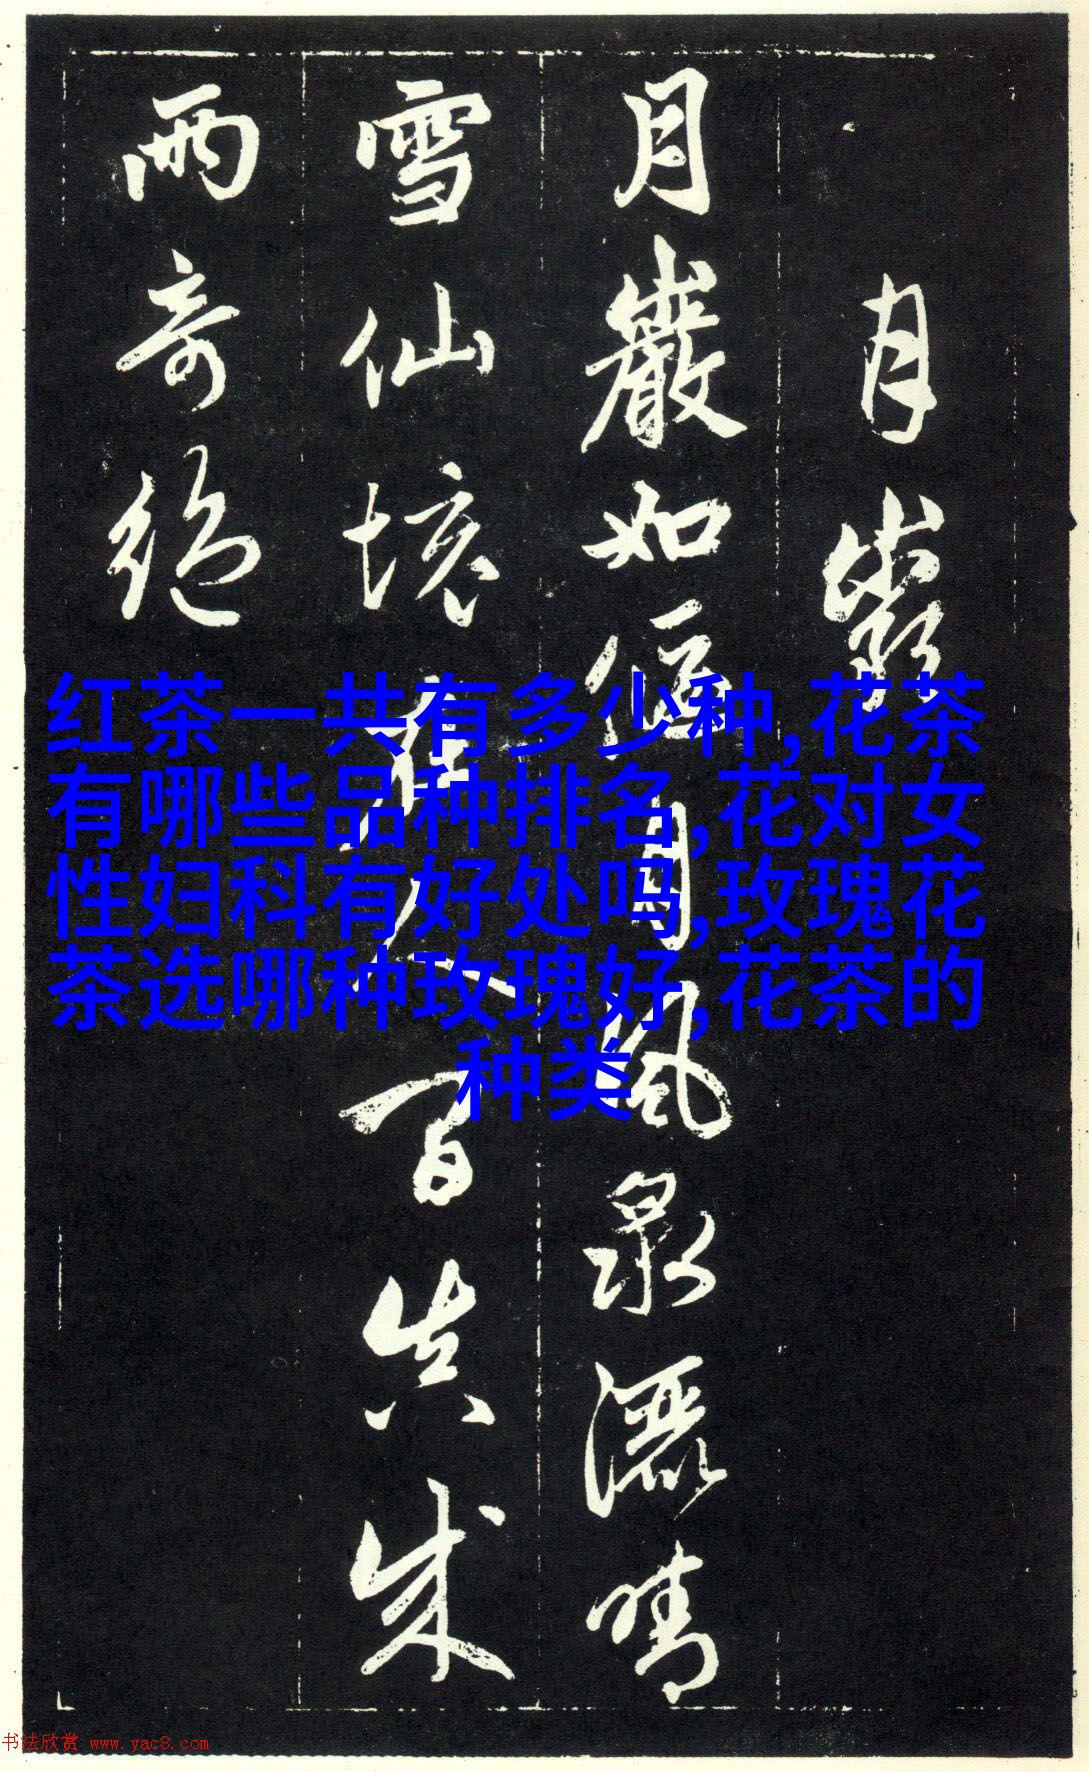 月巖
月巖如偃月風泉灑晴
雪仙境在人百失成
兩奇絕
红茶一共有多少种,花茶
有哪些品种排名,花对女
性妇科有好处吗,玫瑰花
茶选哪种玫瑰好,花茶的
种类
书法欣赏 www.yac8.com